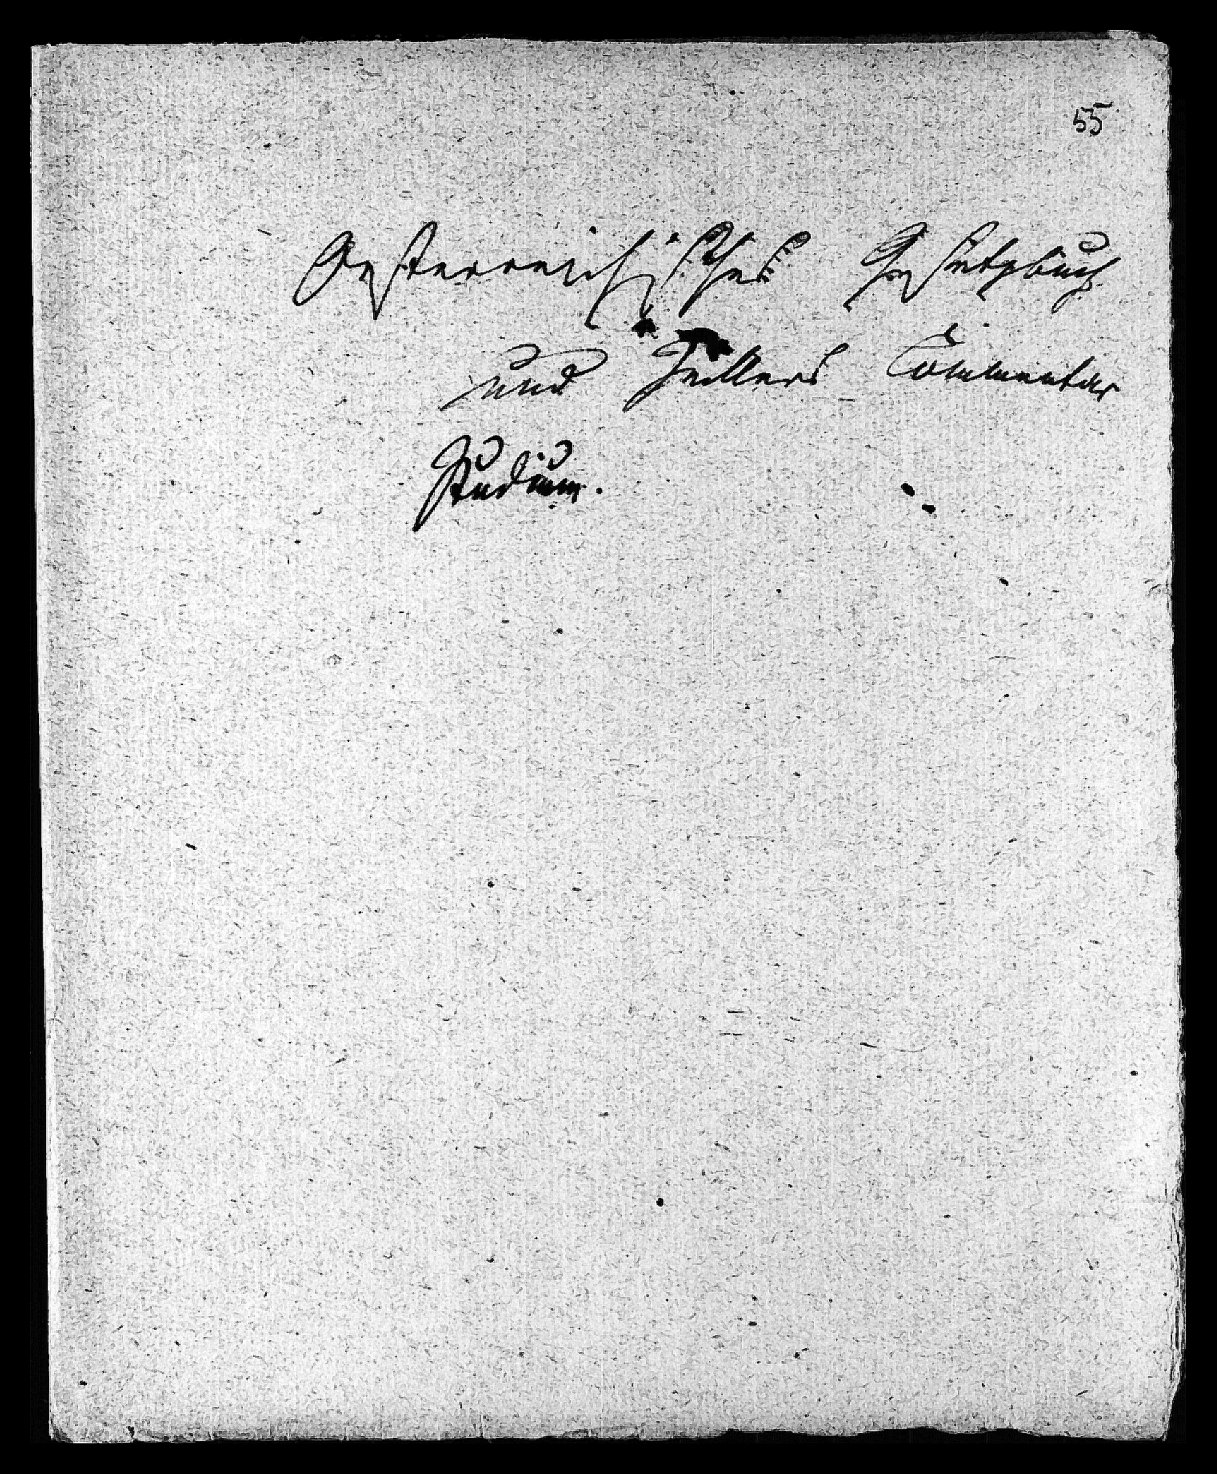 55
Oesterreichisches Gesetzbuch
und Zeillers Commentar
Studium.